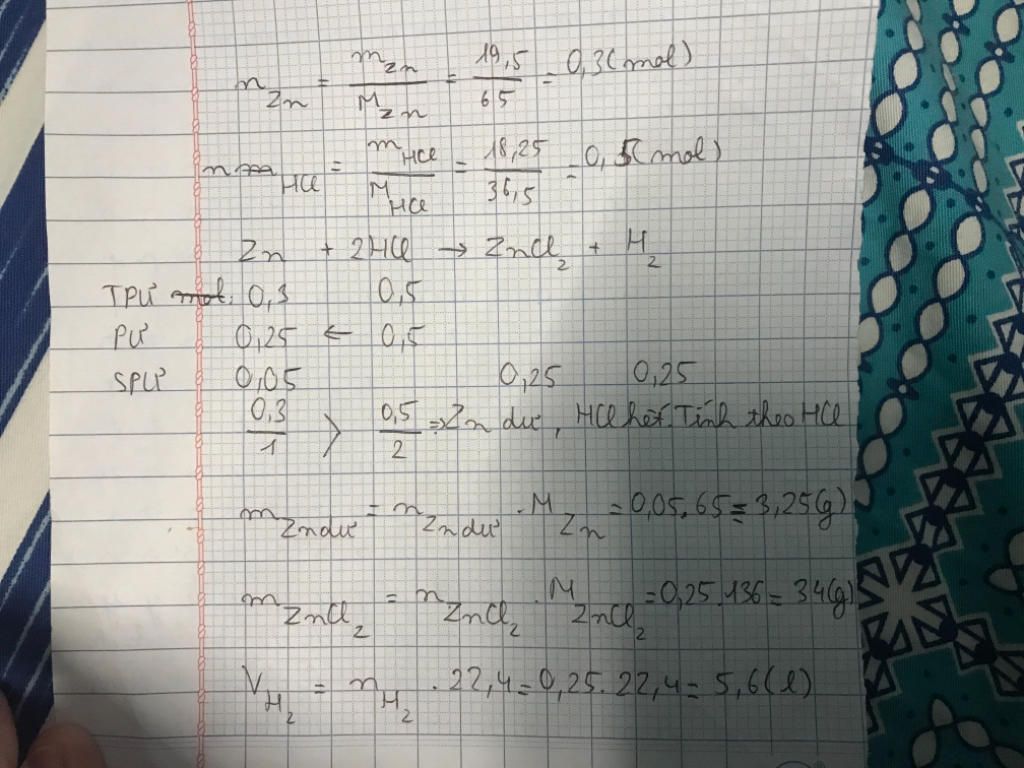 n_Zn = m_Zn / M_Zn = 19,5 / 65 = 0,3 (mol)
n_HCl = m_HCl / M_HCl = 18,25 / 36,5 = 0,5 (mol)
Zn + 2HCl → ZnCl₂ + H₂
TPƯ mol: 0,3 0,5
PƯ 0,25 ← 0,5
SPƯ 0,05 0,25 0,25
0,3 / 1 > 0,5 / 2 ⇒ Zn dư, HCl hết. Tính theo HCl
m_Zn dư = n_Zn dư . M_Zn = 0,05.65 = 3,25(g)
m_ZnCl₂ = n_ZnCl₂ . M_ZnCl₂ = 0,25.136 = 34(g)
V_H₂ = n_H₂ . 22,4 = 0,25.22,4 = 5,6(l)